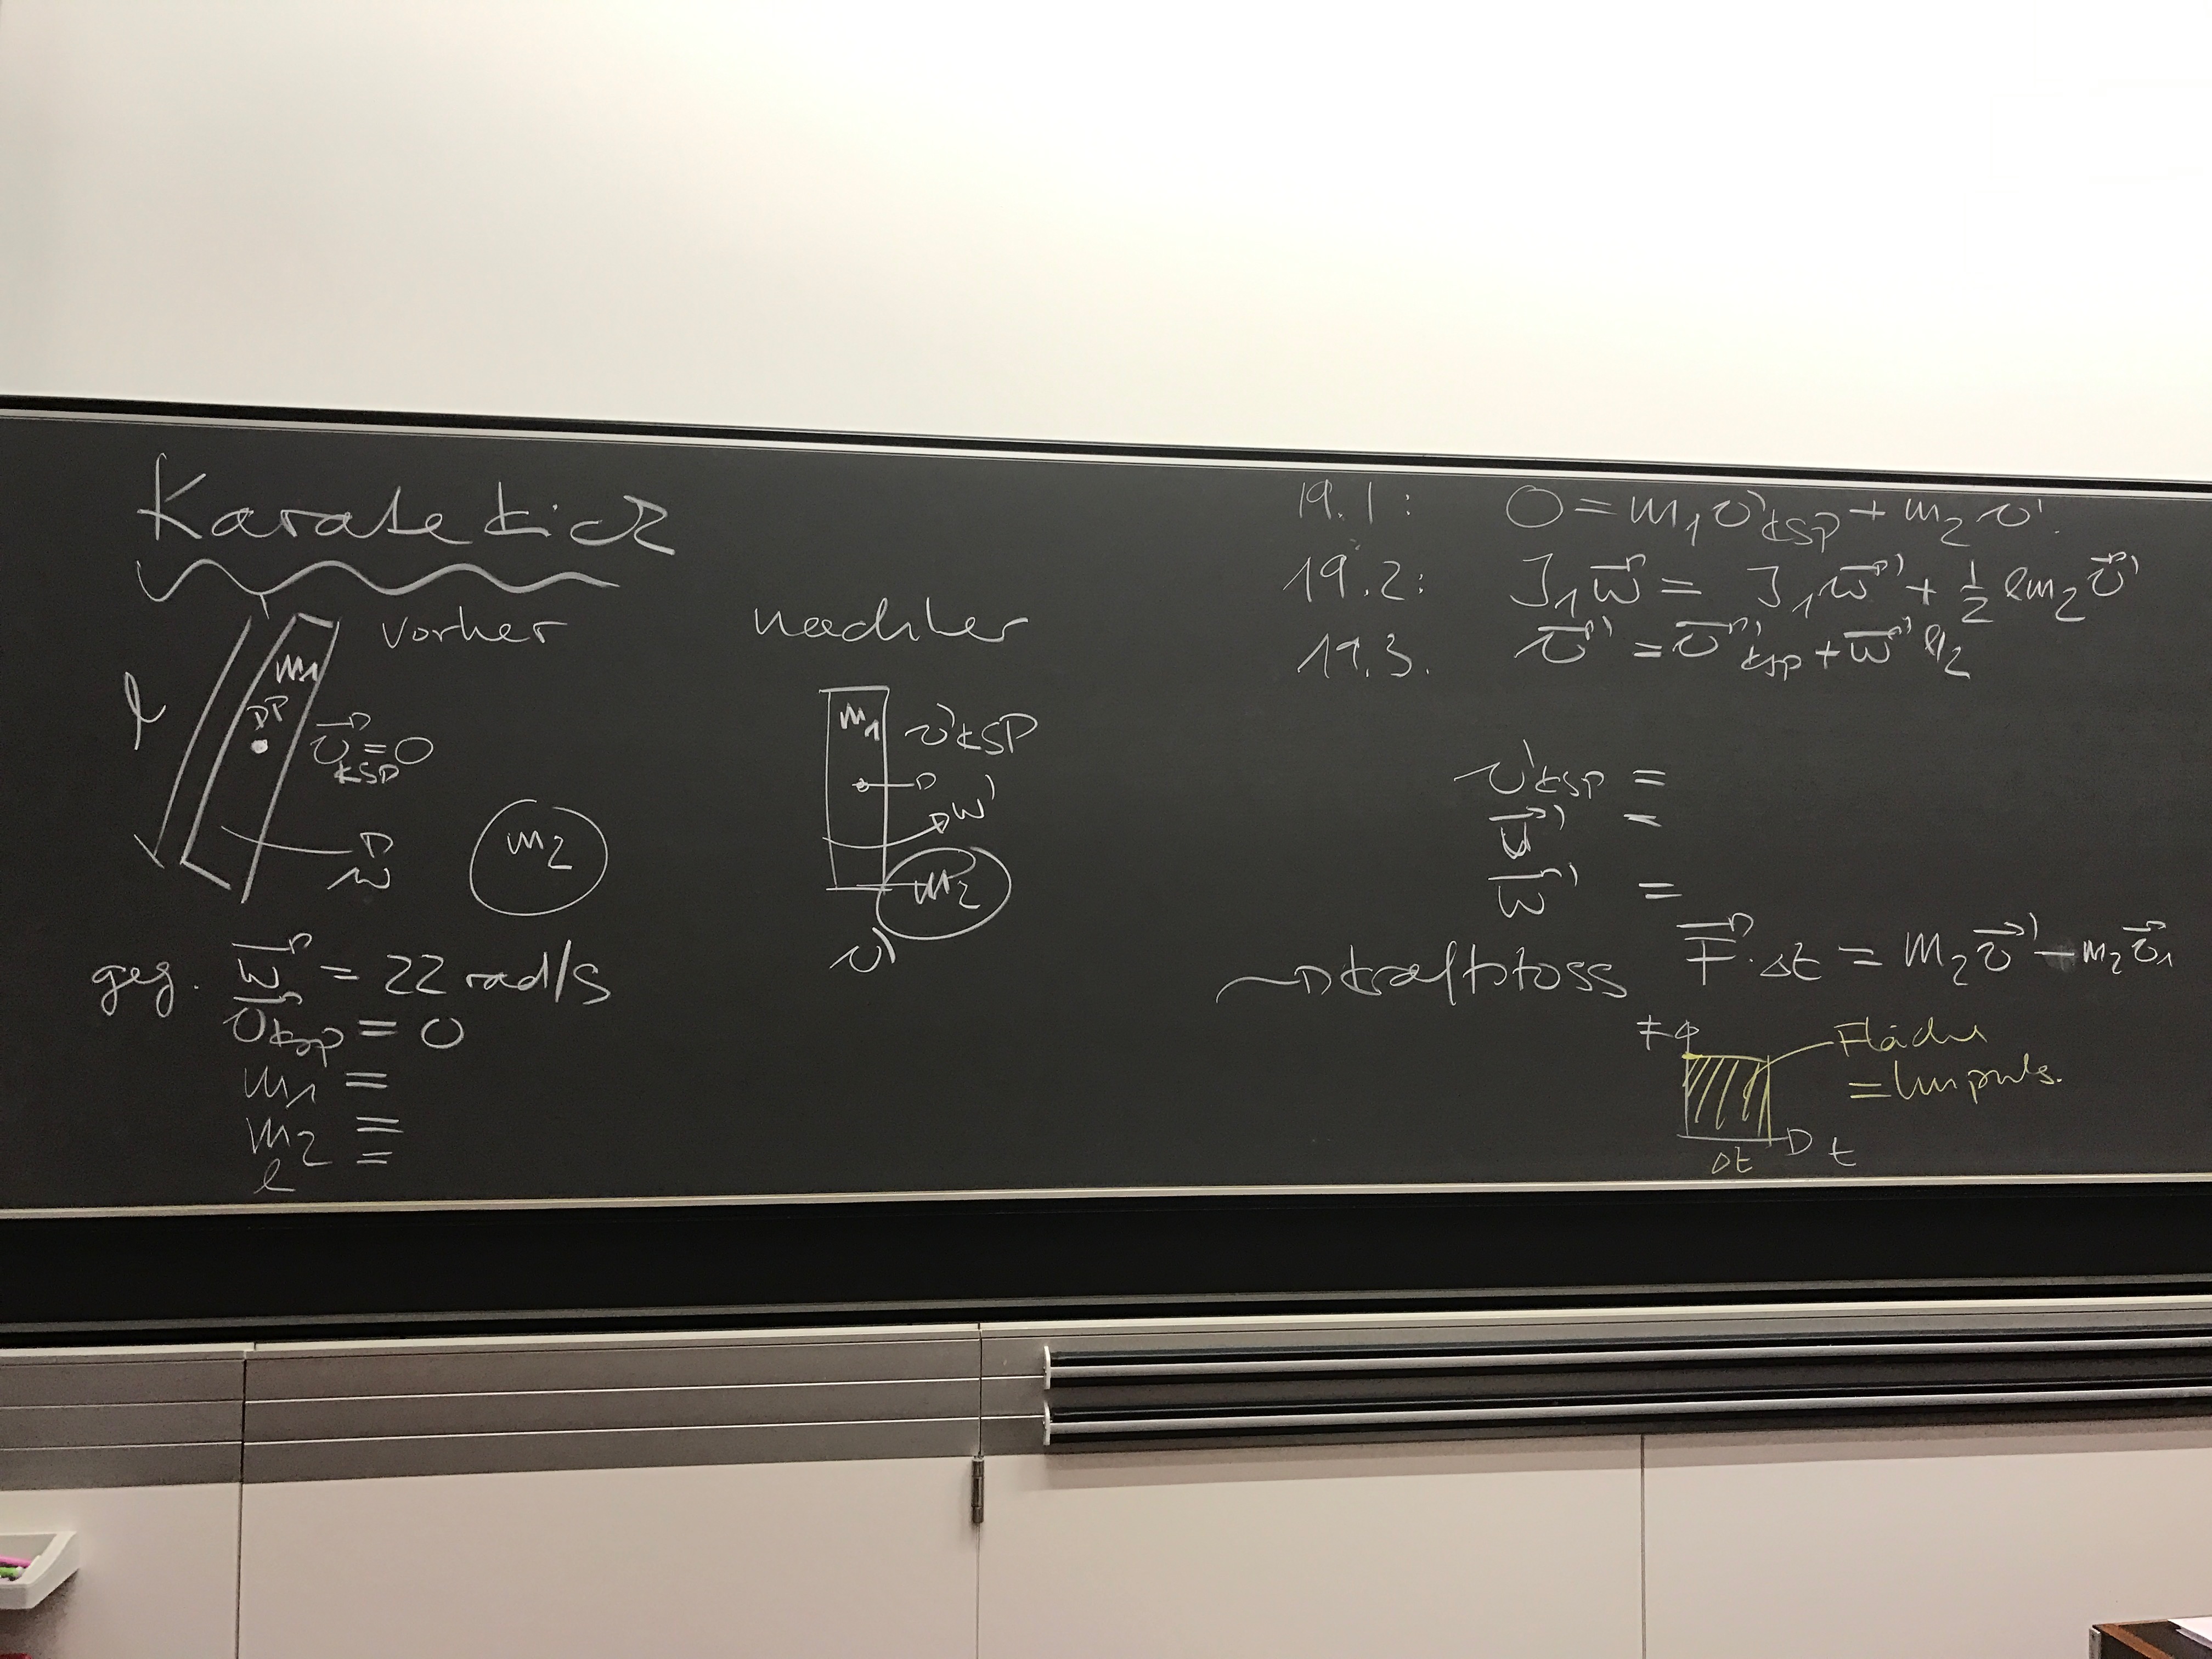 Karate kick
vorher
l
m₁
DP
v⃗_KSP = 0
ω
m₂
geg. ω⃗ = 22 rad/s
v⃗_KSP = 0
m₁ =
m₂ =
l =
nachher
m₁
v'_KSP
ω'
m₂
v'
19.1: 0 = m₁ v'_KSP + m₂ v'.
19.2: J₁ω⃗ = J₁ω⃗' + ½ l m₂ v⃗'
19.3. v⃗' = v⃗'_KSP + ω⃗' l/2
v'_KSP =
v⃗' =
ω⃗' =
→ Kraftstoss F⃗ · Δt = m₂ v⃗' − m₂ v⃗₁
F
Fläche
= Impuls.
Δt
t